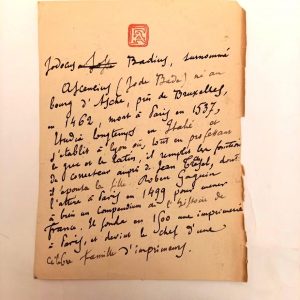 Jodocus Badius, surnommé
Ascencius (Jode Bade) né au
bourg d'Asche, près de Bruxelles,
en 1462, mort à Paris en 1537,
étudia longtemps en Italie et
s'établit à Lyon où, tout en professant
le grec et le latin, il remplit les fonctions
de correcteur auprès de Jean, dont
il épousa la fille. Robert Gaguin
l'attira à Paris en 1499 pour mener
à bien un Compendium de l'histoire de
France. Il fonda en 1500 une imprimerie
à Paris, et devint le chef d'une
célèbre famille d'imprimeurs.